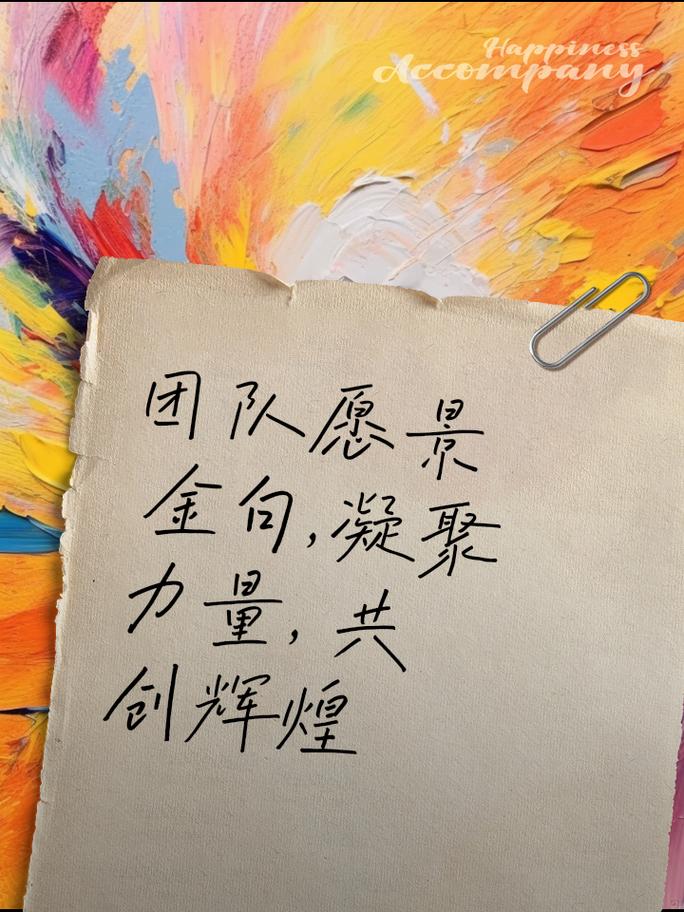 Happiness
Accompany
团队愿景
金句,凝聚
力量,共
创辉煌